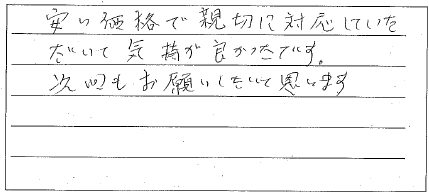 安い価格で親切に対応していた
だいて気持が良かったです。
次回もお願いしたいて思います